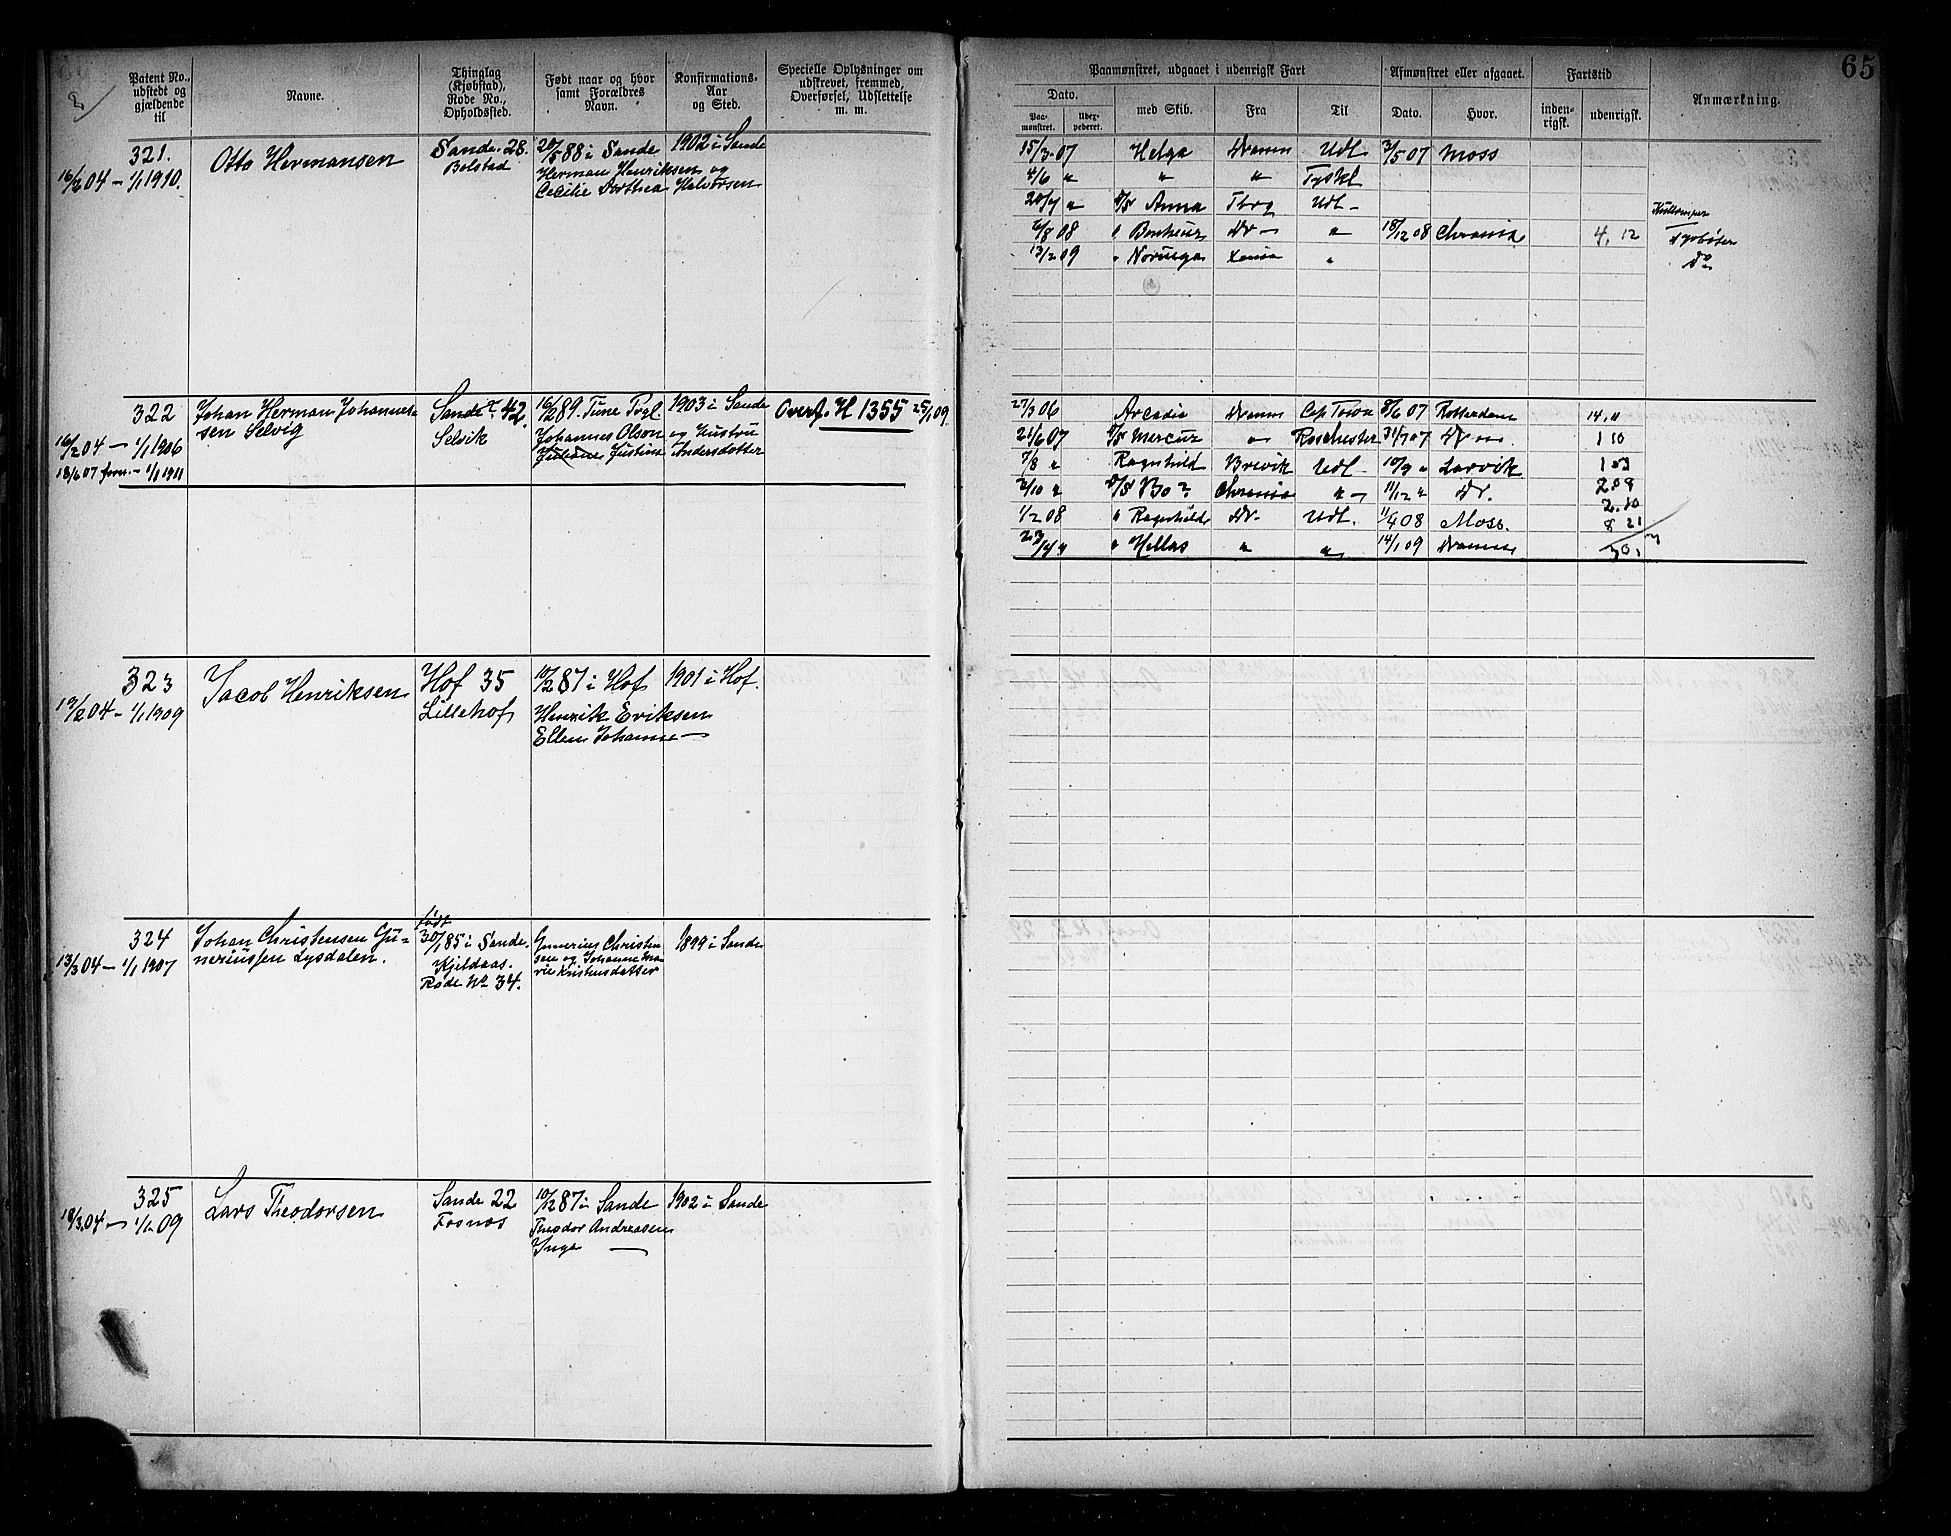 65
Patent No., udstedt og gjældende til
Navne.
Thinglag (Kjøbstad), Rode No., Opholdssted.
Født naar og hvor samt Forældres Navn.
Konfirmations-Aar og Sted.
Specielle Oplysninger om udskrevet, fremmed, Overførsel, Udslettelse m. m.
Paamønstret, udgaaet i udenrigsk Fart
Afmønstret eller afgaaet.
Fartstid
Anmærkning.
Dato.
med Skib.
Fra
Til
Dato.
Hvor.
inden-rigsk.
udenrigsk.
Paa-mønstret.
321.
16/2 04 – 1/1 1910.
Otto Hermansen
Sande. 28.
Bolstad
20/5 88 i Sande
Herman Henriksen og
Cecilie Dorthea Halvorsen
1902 i Sande
15/3 07 Helga Dramm Udl 3/5 07 Moss
4/6 " " " Tyskl
20/7 " D/S Anna Tbrg Udl –
7/8 08 " Bonheur Dr – " 18/12 08 Chrania 4. 12
13/2 09 " Norvega "
Do
322
16/2 04 – 1/1 1906
18/6 07 forn. – 1/1 1911
Johan Herman Johannes-
sen Selvig
Sande 42.
Selvik
16/2 89. Tune Pgl.
Johannes Olson og Hustru
Juliane Justina Andersdatter
1903 i Sande
Overf. H 1355 25/1 09.
27/3 06 Arcadia Dramm Cap Town 8/6 07 Rotterdam 14. 11
21/6 07 D/S Mercur " Rochester 31/7 07 Dr 1 10
7/8 " Ragnhild Brevik Udl – 10/9 " Larvik 1 03
2/10 " D/S Bo Chrania " – 11/12 " Dr. 2.09
1/2 08 " Ragnhild Dr. Udl. 11/4 08 Moss. 2.10
23/4 " " Hellas " " 14/1 09 Dramm 8 21
323
19/2 04 – 1/1 1909
Jacob Henriksen
Hof 35
Lillehof
10/2 87 i Hof
Henrik Eriksen
Ellen Johanne –
1901 i Hof.
324
13/3 04 – 1/1 1907
Johan Christensen Gu-
neriussen Lysdalen.
født
30/1 85 i Sande.
Kjeldaas.
Rode No 34.
Gunerius Christen
sen og Johanne Ma-
rie Kristensdatter
1899 i Sande
325
18/3 04 – 1/1 09
Lars Theodorsen
Sande 22
Fosnos
10/12 87 i Sande
Theodor Andreasen
Inga –
1902 i Sande